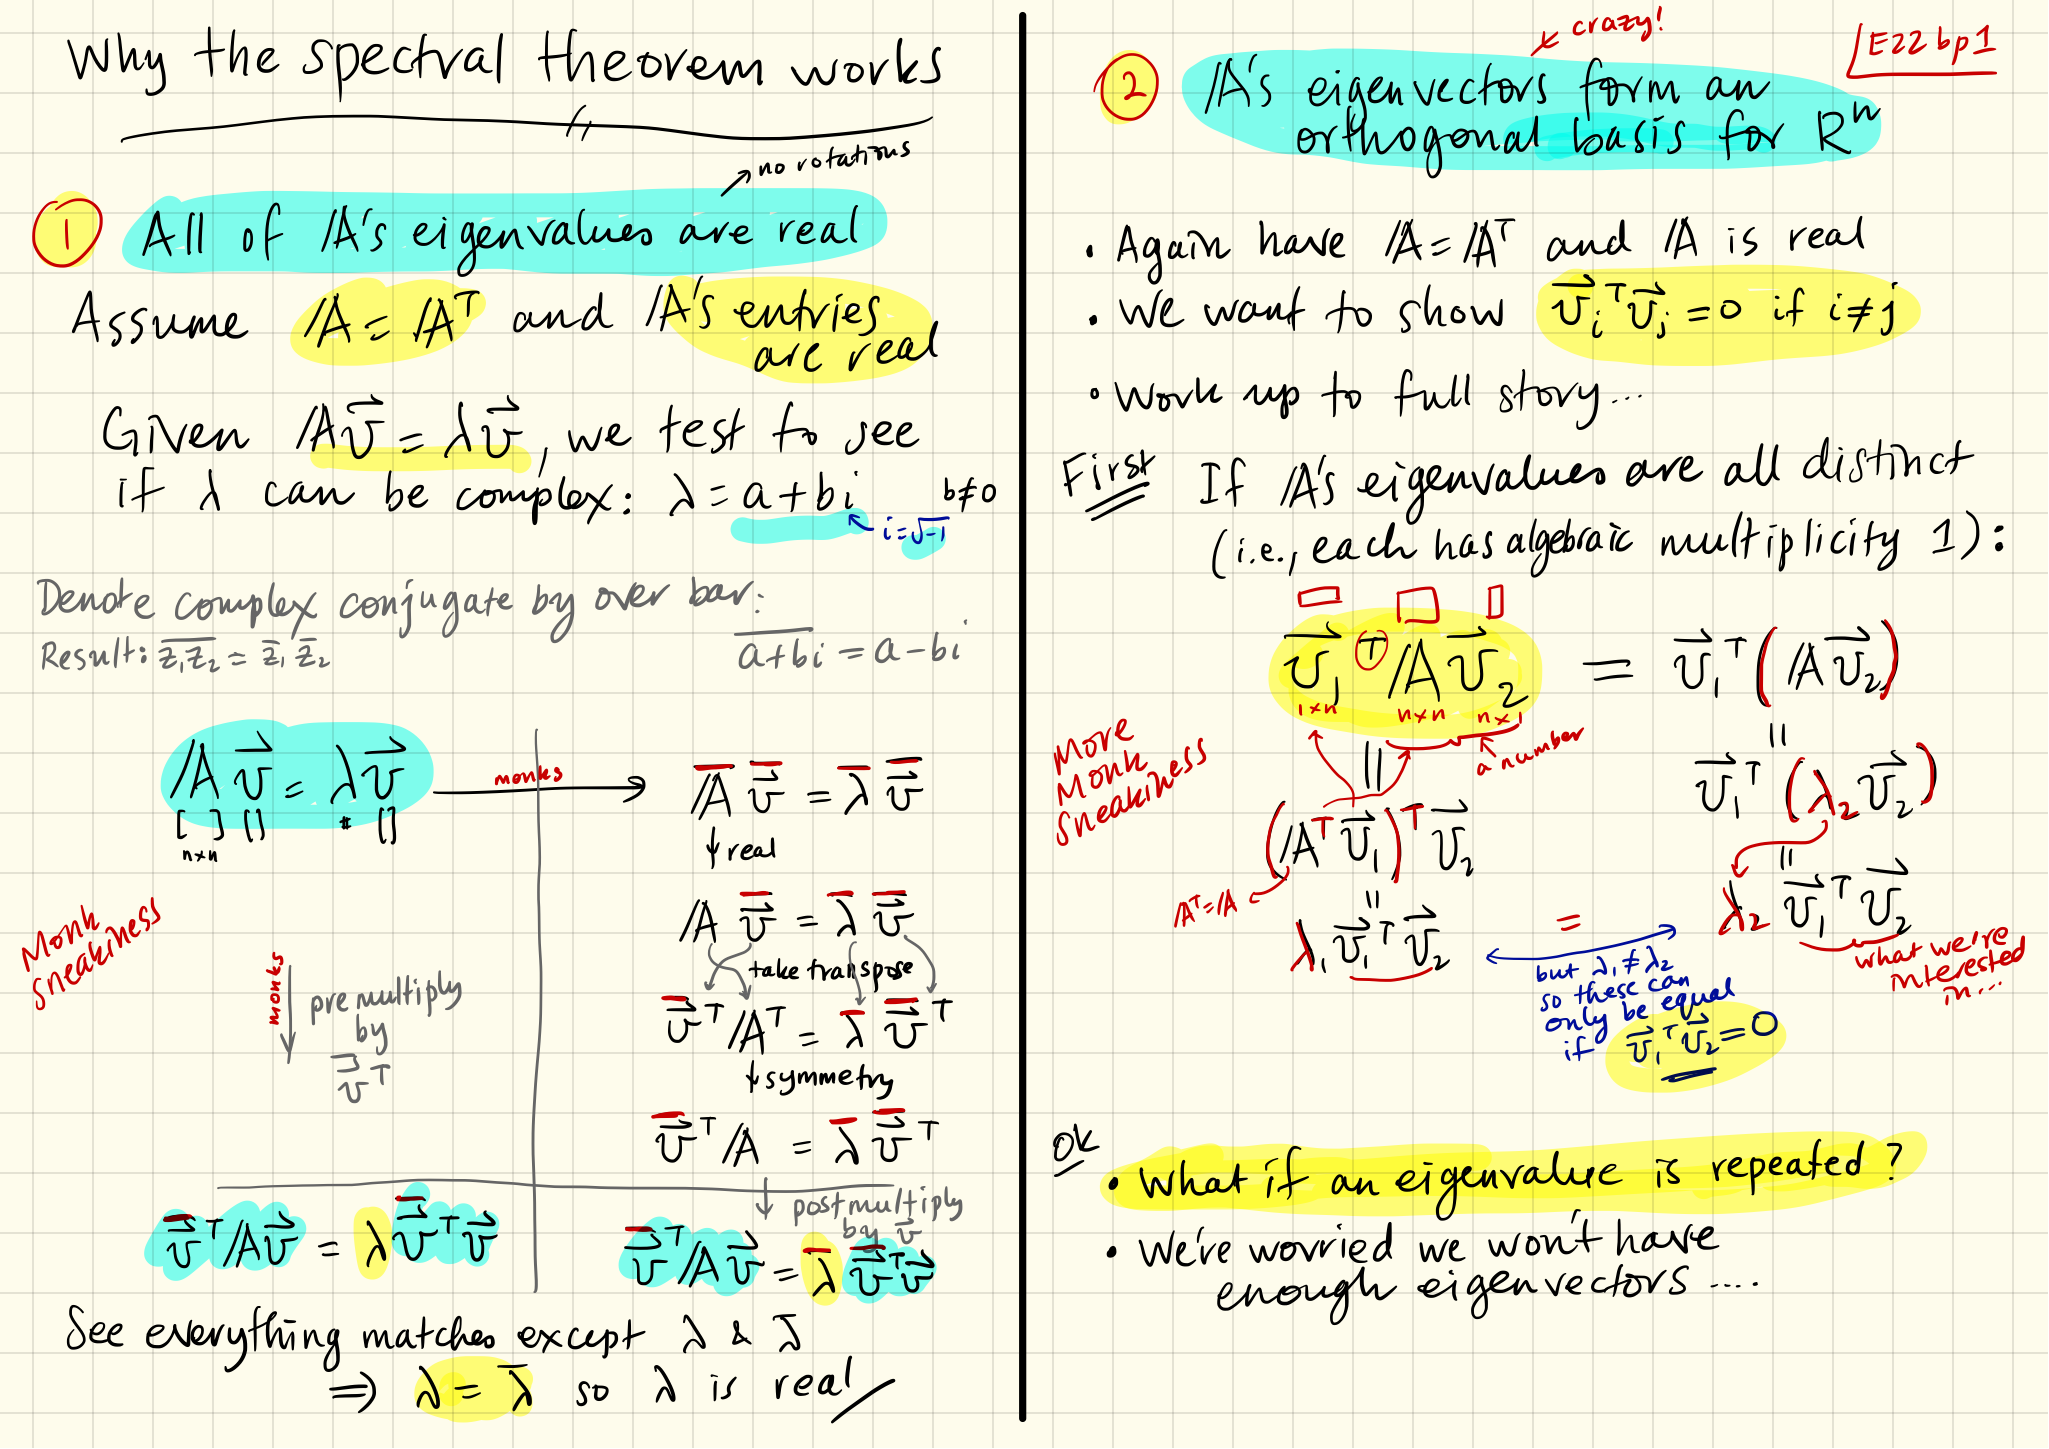 Why the spectral theorem works
→ no rotations
1 All of A's eigenvalues are real
Assume A = Aᵀ and A's entries
are real
Given Av⃗ = λv⃗, we test to see
if λ can be complex: λ = a + bi b≠0
i = √-1
Denote complex conjugate by over bar:
Result: \overline{z₁z₂} = z̄₁ z̄₂ \overline{a+bi} = a - bi
A v⃗ = λ v⃗
[ ] [] # []
n×n
monks
Ā \overline{v⃗} = λ̄ \overline{v⃗}
↓ real
A \overline{v⃗} = λ̄ \overline{v⃗}
take transpose
\overline{v⃗}ᵀ Aᵀ = λ̄ \overline{v⃗}ᵀ
↓ symmetry
\overline{v⃗}ᵀ A = λ̄ \overline{v⃗}ᵀ
↓ postmultiply
by v⃗
\overline{v⃗}ᵀ A v⃗ = λ̄ \overline{v⃗}ᵀ v⃗
Monk
sneakiness
monks
premultiply
by
\overline{v⃗}ᵀ
\overline{v⃗}ᵀ A v⃗ = λ \overline{v⃗}ᵀ v⃗
See everything matches except λ & λ̄
⇒ λ = λ̄ so λ is real
crazy!
E22 bp1
2 A's eigenvectors form an
orthogonal basis for Rⁿ
• Again have A = Aᵀ and A is real
• We want to show v⃗ᵢᵀ v⃗ⱼ = 0 if i ≠ j
• Work up to full story...
First If A's eigenvalues are all distinct
(i.e., each has algebraic multiplicity 1):
v⃗₁ᵀ A v⃗₂ = v⃗₁ᵀ (A v⃗₂)
1×n n×n n×1
a number
More
Monk
sneakiness
= =
v⃗₁ᵀ (λ₂ v⃗₂)
(Aᵀ v⃗₁)ᵀ v⃗₂
Aᵀ = A
= =
λ₁ v⃗₁ᵀ v⃗₂ = λ₂ v⃗₁ᵀ v⃗₂
what we're
interested
in...
but λ₁ ≠ λ₂
so these can
only be equal
if v⃗₁ᵀ v⃗₂ = 0
OK
• What if an eigenvalue is repeated?
• We're worried we won't have
enough eigenvectors ....